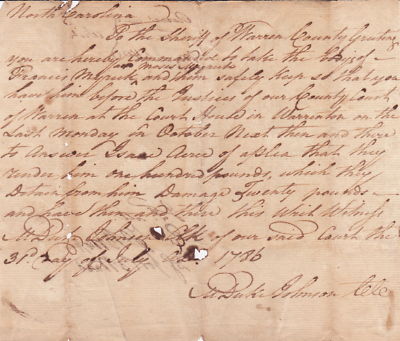 North Carolina
To the Sheriff of Warren County Greeting
you are hereby Commanded to take the Body of
Francis Myrick and him safely keep so that you
have him before the Justices of our County Court
of Warren at the Court House in Warrenton on the
Last Monday in October Next then and there
to Answer Isaac Acree of a plea that they
render him one hundred pounds, which they
Detain from him Damage Twenty pounds
and have then and there this Writ Witness
M. Duke Johnson of our said Court the
31st Day of July 1786
M. Duke Johnson